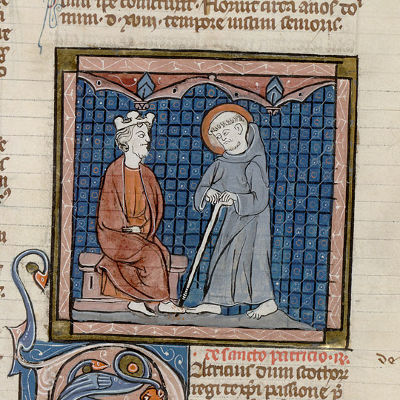 ipe construxit. Floruit circa anos do
mini. d. xviii. tempore iustini senioris.
de sancto patricio. R.
atricius dum scothor
regi de xpi passione p
de